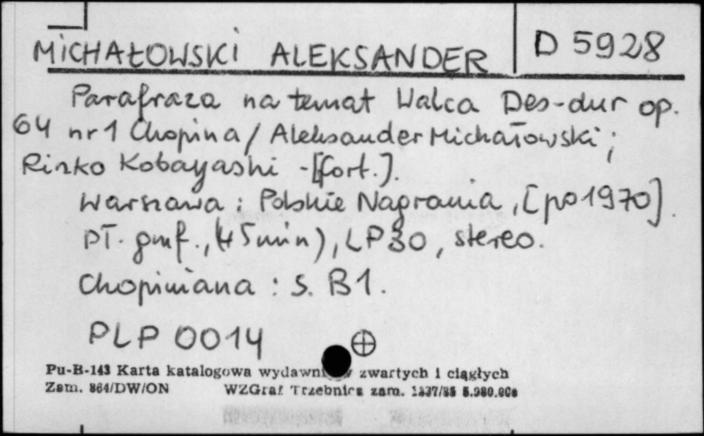 MICHAŁOWSKI ALEKSANDER D 5928
Parafraza na temat Walca Des-dur op.
64 nr 1 Chopina / Aleksander Michałowski ;
Rinko Kobayashi - [fort.].
Warszawa : Polskie Nagrania, [po 1970].
Pł. gmf., (4 5 min), LP 30, stereo.
Chopiniana : S. B1.
PLP 0014
Pu-B-143 Karta katalogowa wydawnictw zwartych i ciągłych
Zam. 864/DW/ON WZGraf Trzebnica zam. 1337/85 5.980.000